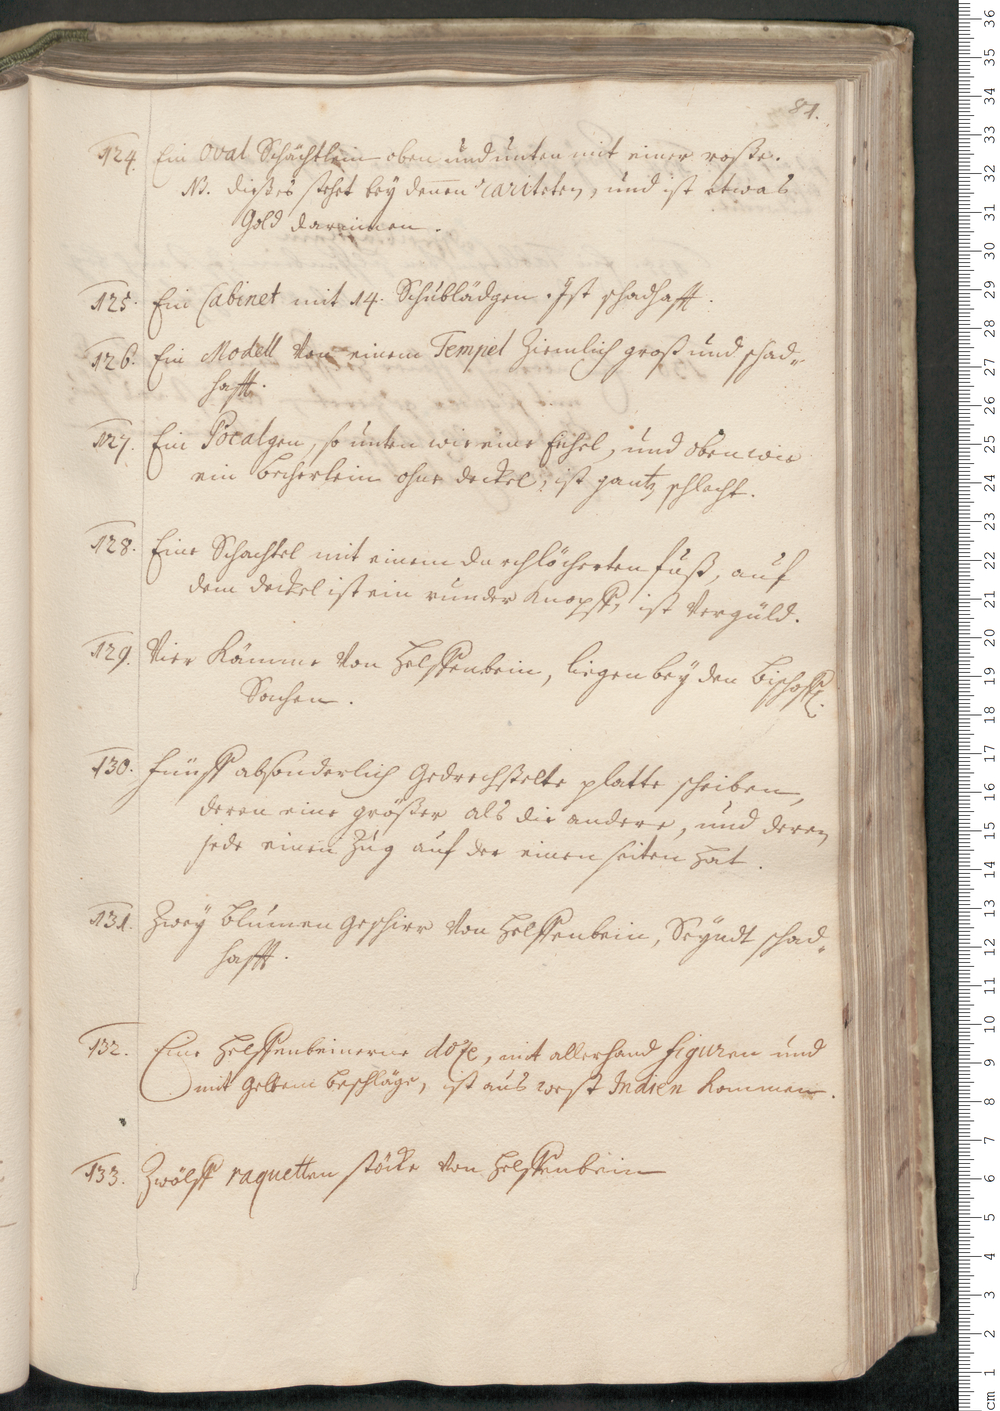 81.
124. Ein oval Schächtlein oben und unten mit einer roße.
NB. dießes stehet bey denen rariteten, und ist etwas
Gold darinnen.
125. Ein Cabinet mit 14. Schublädgen. Ist schadhafft.
126. Ein Modell von einem Tempel Ziemlich groß und schad-
hafft.
127. Ein Pocalgen, so unten wie eine Eichel, und oben wie
ein becherlein ohne deckel, ist gantz schlecht.
128. Eine Schachtel mit einem durchlöcherten fuß, auf
dem deckel ist ein runder Knopff, ist vergüld.
129. Vier Kämme von Helffenbein, liegen bey den Bischoffl.
Sachen.
130. fünff absonderlich Gedrechselte platte scheiben,
deren eine größer als die andere, und deren
jede einen Zug auf der einen seiten hat.
131. Zwey blumen geschirr von Helffenbein, Seyndt schad-
hafft.
132. Eine Helffenbeinerne dose, mit allerhand figuren und
mit gelbem beschläge, ist aus west Indien kommen.
133. Zwölff raquetten stöcke von Helffenbein